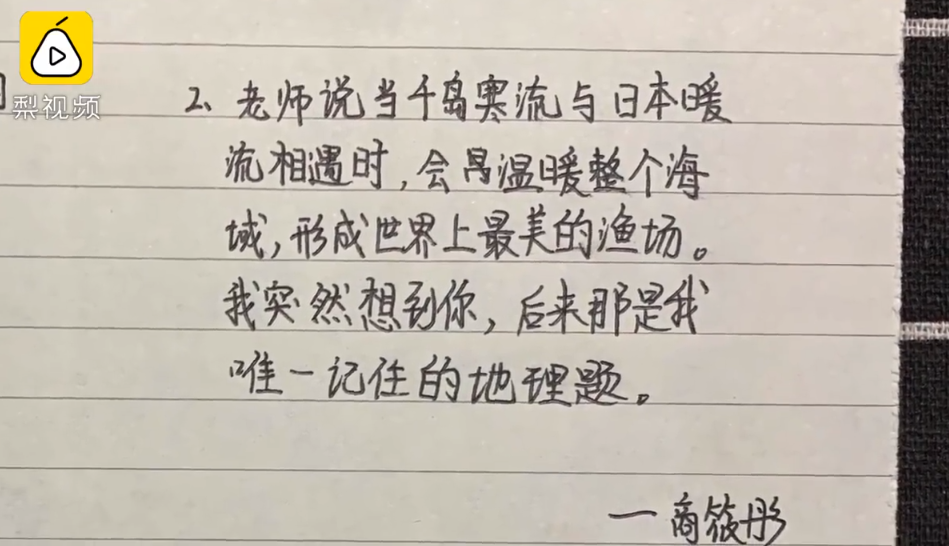 梨视频
2、老师说当千岛寒流与日本暖
流相遇时,会温暖整个海
域,形成世界上最美的渔场。
我突然想到你,后来那是我
唯一记住的地理题。
一商筱彤